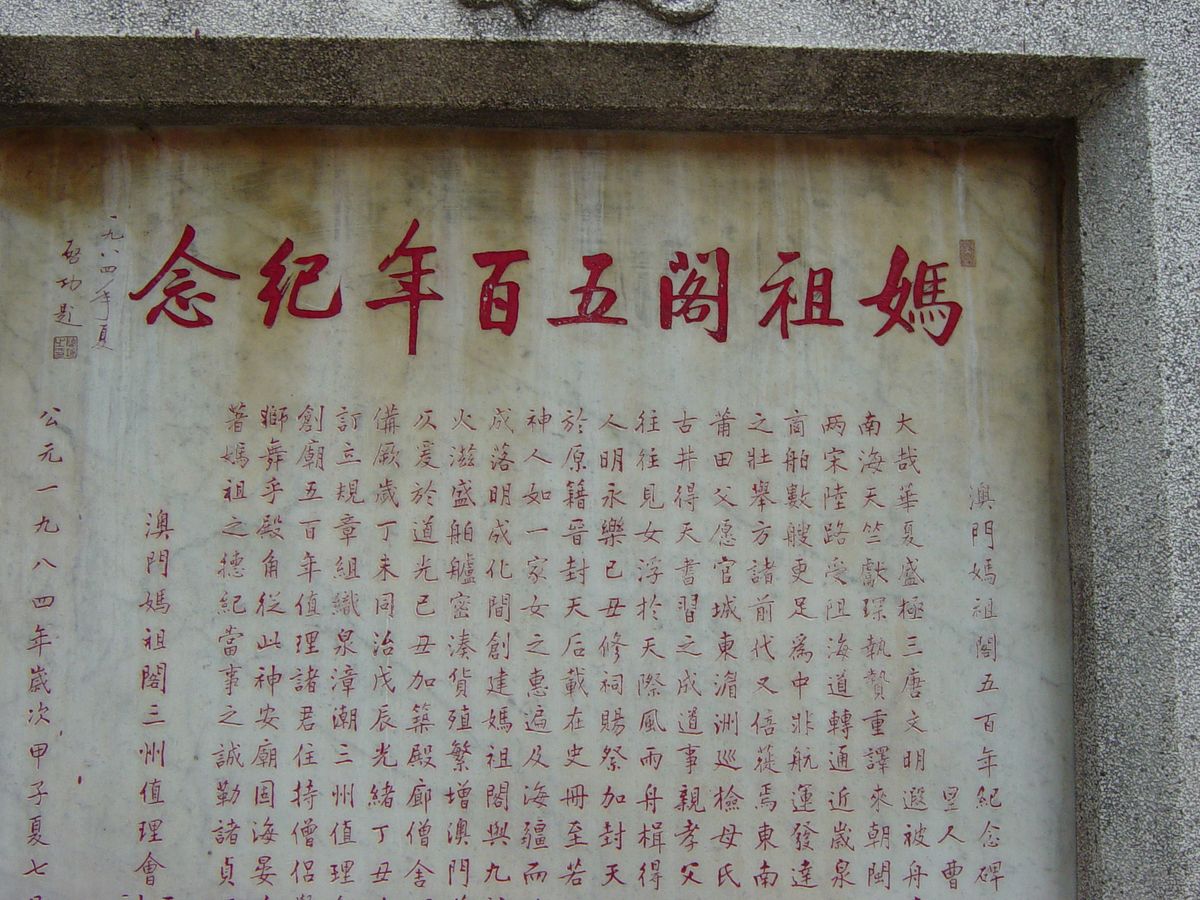 媽祖閣五百年紀念
一九八四年夏
啓功題
澳門媽祖閣五百年紀念碑
里人曹
大哉華夏盛極三唐文明遐被舟
南海天竺獻琛執贄重譯來朝閩
两宋陸路受阻海道轉通近歲泉
商舶數艘更足為中非航運發達
之壯舉方諸前代又倍蓰焉東南
莆田父愿官城東湄洲巡檢母氏
古井得天書習之成道事親孝父
往往見女浮於天際風雨舟楫得
人明永樂己丑修祠賜祭加封天
於原籍晉封天后載在史冊至若
神人如一家女之惠遍及海疆而
成落明成化間創建媽祖閣與九
火滋盛舶艫密湊貨殖繁增澳門
仄爰於道光己丑加築殿廊僧舍
備厥歲丁未同治戊辰光緒丁丑
訂立規章組織泉漳潮三州值理
創廟五百年值理諸君住持僧侶
獅舞乎殿角從此神安廟固海晏
著媽祖之德紀當事之誠勒諸貞
澳門媽祖閣三州值理會
公元一九八四年歲次甲子夏七